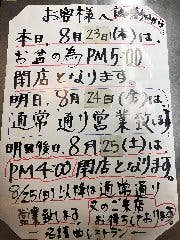 お客様へ
本日、8月23日(木)は、
お昔の為PM5:00
閉店となります。
明日、8月24日(金)は、
通常通り営業致します
明後日、8月25(土)は、
PM4:00/閉店となります。
8/25(日)以降は通常通り
営業致します
又のご来店
お待ちしております
レストラン